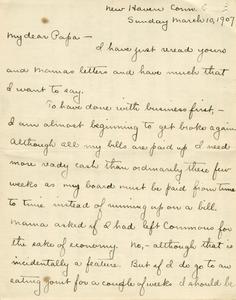 New Haven Conn.
Sunday March 10, 1907
My dear Papa –
I have just reread yours
and Mamas letters and have much that
I want to say.
To have done with business first, –
I am almost beginning to get broke again.
Although all my bills are paid up I need
more ready cash than ordinarily these few
weeks as my board must be paid from time
to time instead of running up on a bill.
Mama asked if I had left Commons for
the sake of economy. No, – although that is
incidentally a feature. But if I do go to an
eating joint for a couple of weeks I should be